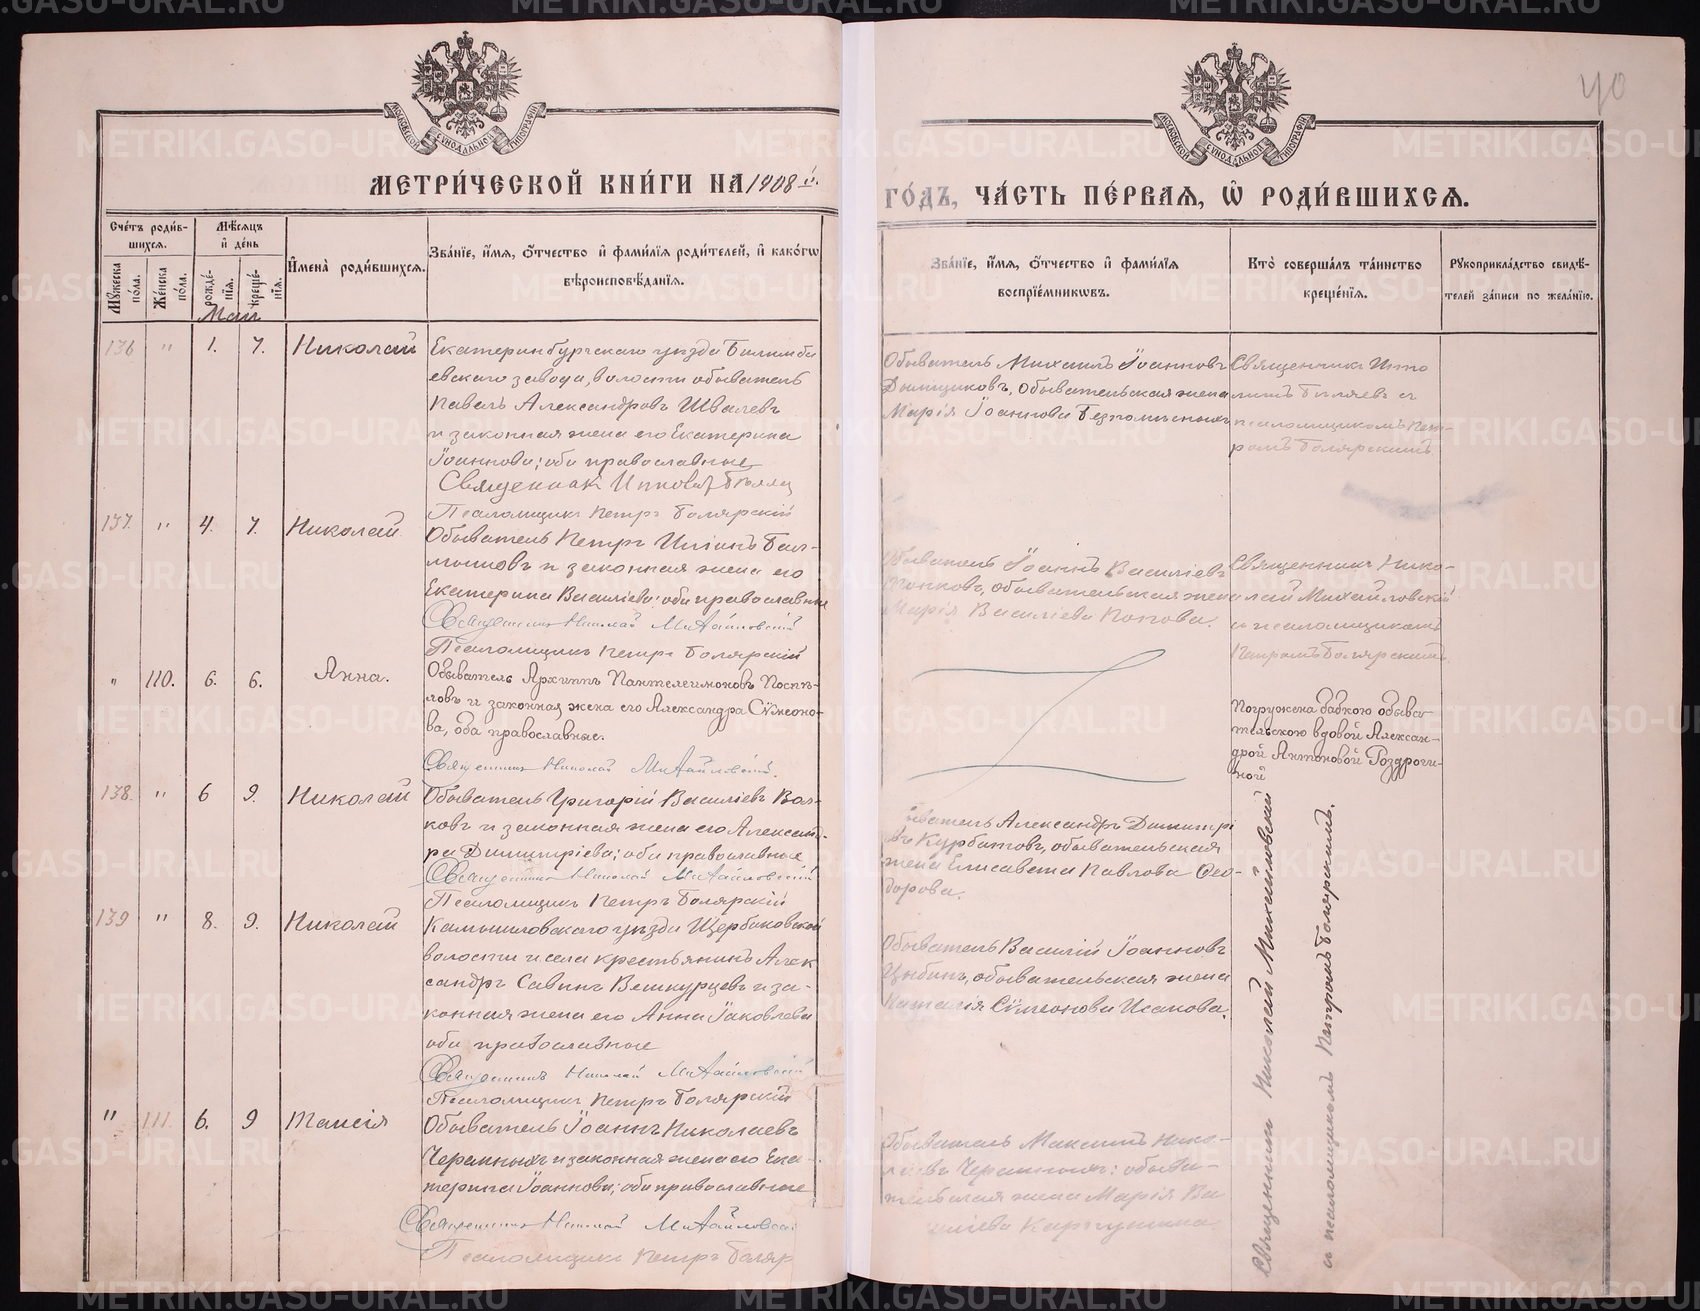 40
МОСКОВСКОЙ СѴНОДАЛЬНОЙ ТИПОГРАФІИ
МОСКОВСКОЙ СѴНОДАЛЬНОЙ ТИПОГРАФІИ
МЕТРИ́ЧЕСКОЙ КНИ́ГИ НА 1908 й.
ГО́ДЪ, ЧА́СТЬ ПЕ́РВАЯ, Ѡ҆ РОДИ́ВШИХСѦ.
Сче́тъ роди́в-
шихся.
Мꙋжеска по́ла.
Же́нска по́ла.
Мѣ́сяцъ и҆ де́нь
рожде́-нїѧ.
креще́-нїѧ.
И҆мена̀ роди́вшихся.
Зва́нїе, и҆́мѧ, ѻ҆́тчество и҆ фами́лїѧ роди́телей, и҆ како́гѡ
вѣроисповѣ́данїѧ.
Зва́нїе, и҆́мѧ, ѻ҆́тчество и҆ фами́лїѧ
воспрїе́мникѡвъ.
Кто̀ соверша́лъ та́инство
креще́нїѧ.
Рꙋкоприкла́дство свидѣ́-
телей за́писи по жела́нїю.
Май
136 " 1. 7. Николай
Екатеринбургскаго уѣзда Билимба
евскаго завода, волости обыватель
Павелъ Александровъ Швалевъ
и законная жена его Екатерина
Іоаннова; оба православные
Священник Ипполит Биляев
Псаломщикъ Петръ Болярскій
Обыватель Михаилъ Іоанновъ
Дылдиковъ, обывательская жена
Марія Іоаннова Безпомыльныхъ
Священникъ Иппо
литъ Биляевъ съ
псаломщикомъ Пет-
ромъ Болярскимъ
137. " 4. 7. Николай
Обыватель Петръ
и законная жена его
Екатерина Василіева; оба православные
Священникъ Николай Михайловскій
Псаломщикъ Петръ Болярскій
Обыватель Іоаннъ Василіевъ
Попковъ, обывательская жена
Марія Василіева Попова.
Священникъ Нико-
лай Михайловскій
и псаломщикомъ
Петромъ Болярскимъ.
" 110. 6. 6. Анна.
Обыватель Архиппъ Пантелеимоновъ Поспѣ-
ловъ и законная жена его Александра Сѵмеоно-
ва, оба православные.
Священникъ Николай Михайловскій.
Погружена бабкою обыва
тельскою вдовой Алексан-
дрой Антоновой Роздроги-
ной
138. " 6 9. Николай
Обыватель Григорій Василіевъ Вол-
ковъ и законная жена его Александ-
ра Димитріева; оба православные
Священникъ Николай Михайловскій
Псаломщикъ Петръ Болярскій
Обыватель Александръ Димитрі
евъ Курбатовъ, обывательская
жена Елисавета Павлова Ѳео-
дорова.
139 " 8. 9. Николай
Камышловскаго уѣзда Щербаковской
волости и села крестьянинъ Алек
сандръ Савинъ Вешкурцевъ и за-
конная жена его Анна Іаковлева
оба православные
Священникъ Николай Михайловскій
Псаломщикъ Петръ Болярскій
Обыватель Василій Іоанновъ
Цыбинъ, обывательская жена
Наталія Сѵмеонова Исакова.
" 111. 6. 9 Таисія
Обыватель Іоаннъ Николаевъ
Черемныхъ и законная жена его Ека-
терина Іоаннова; оба православные
Священникъ Николай Михайловскій
Псаломщикъ Петръ Боляр
Обыватель Максимъ Нико-
лаевъ Черемныхъ; обыва-
тельская жена Марія Ва
силіева
Священник Николай Михайловскій
и псаломщикомъ Петромъ Болярскимъ.
METRIKI.GASO-URAL.RU